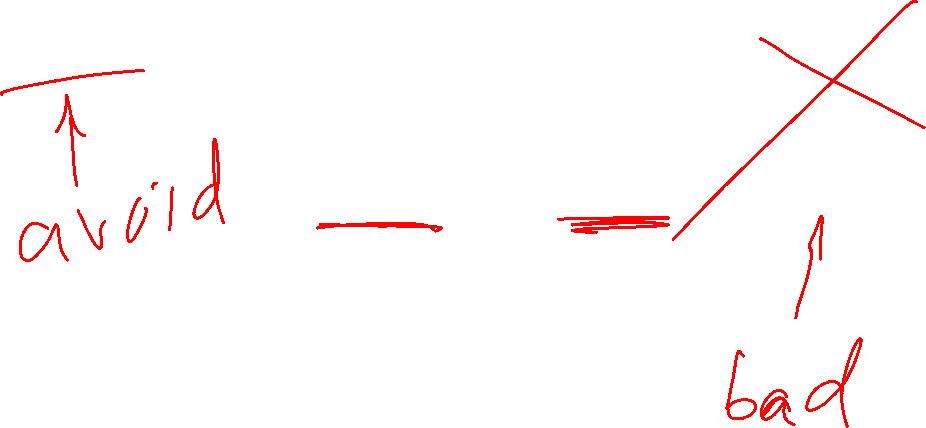 avoid
bad